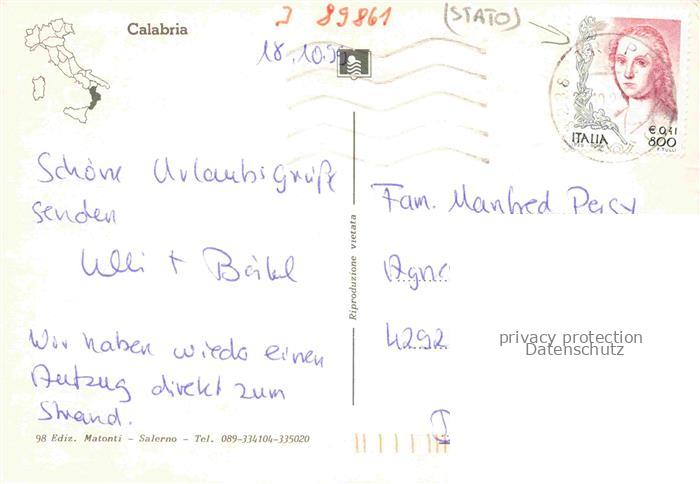 J 89861 (STATO)
Calabria
18.10.99
ITALIA
€ 0,41
800
F. TULLI
Schöne Urlaubsgrüße
senden
Ulli +
Wir haben wieder einen
Aufzug direkt zum
Strand.
98 Ediz. Matonti - Salerno - Tel. 089-334104-335020
Riproduzione vietata
Fam. Manfred Percy
Agn
4292
privacy protection
Datenschutz